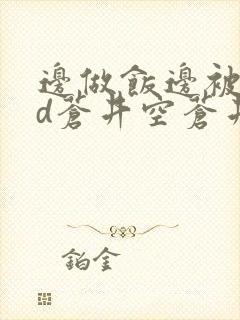 邊做飯邊被
d蒼井空蒼井
鉑金